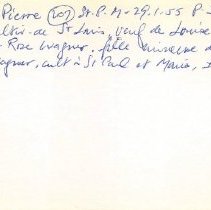 Pierre (107) St. P. M - 29.1.55 P -
de St Louis, veuf de Louise
- Rose Wagner, fille mineure d
agner, cult à St Paul et Maria,